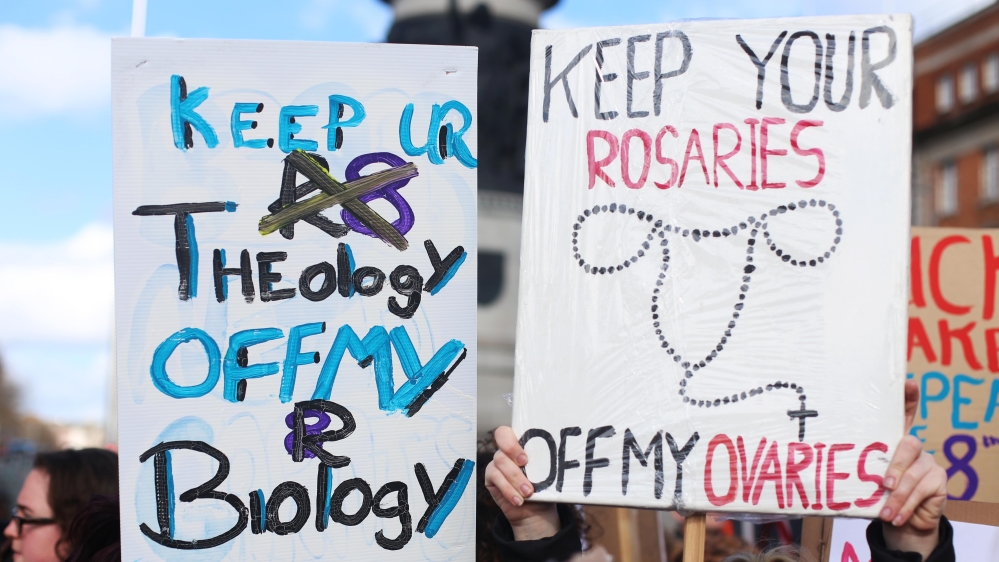 KEEP UR
THEology
OFF MY
R8
Biology
KEEP YOUR
ROSARIES
OFF MY OVARIES
8th